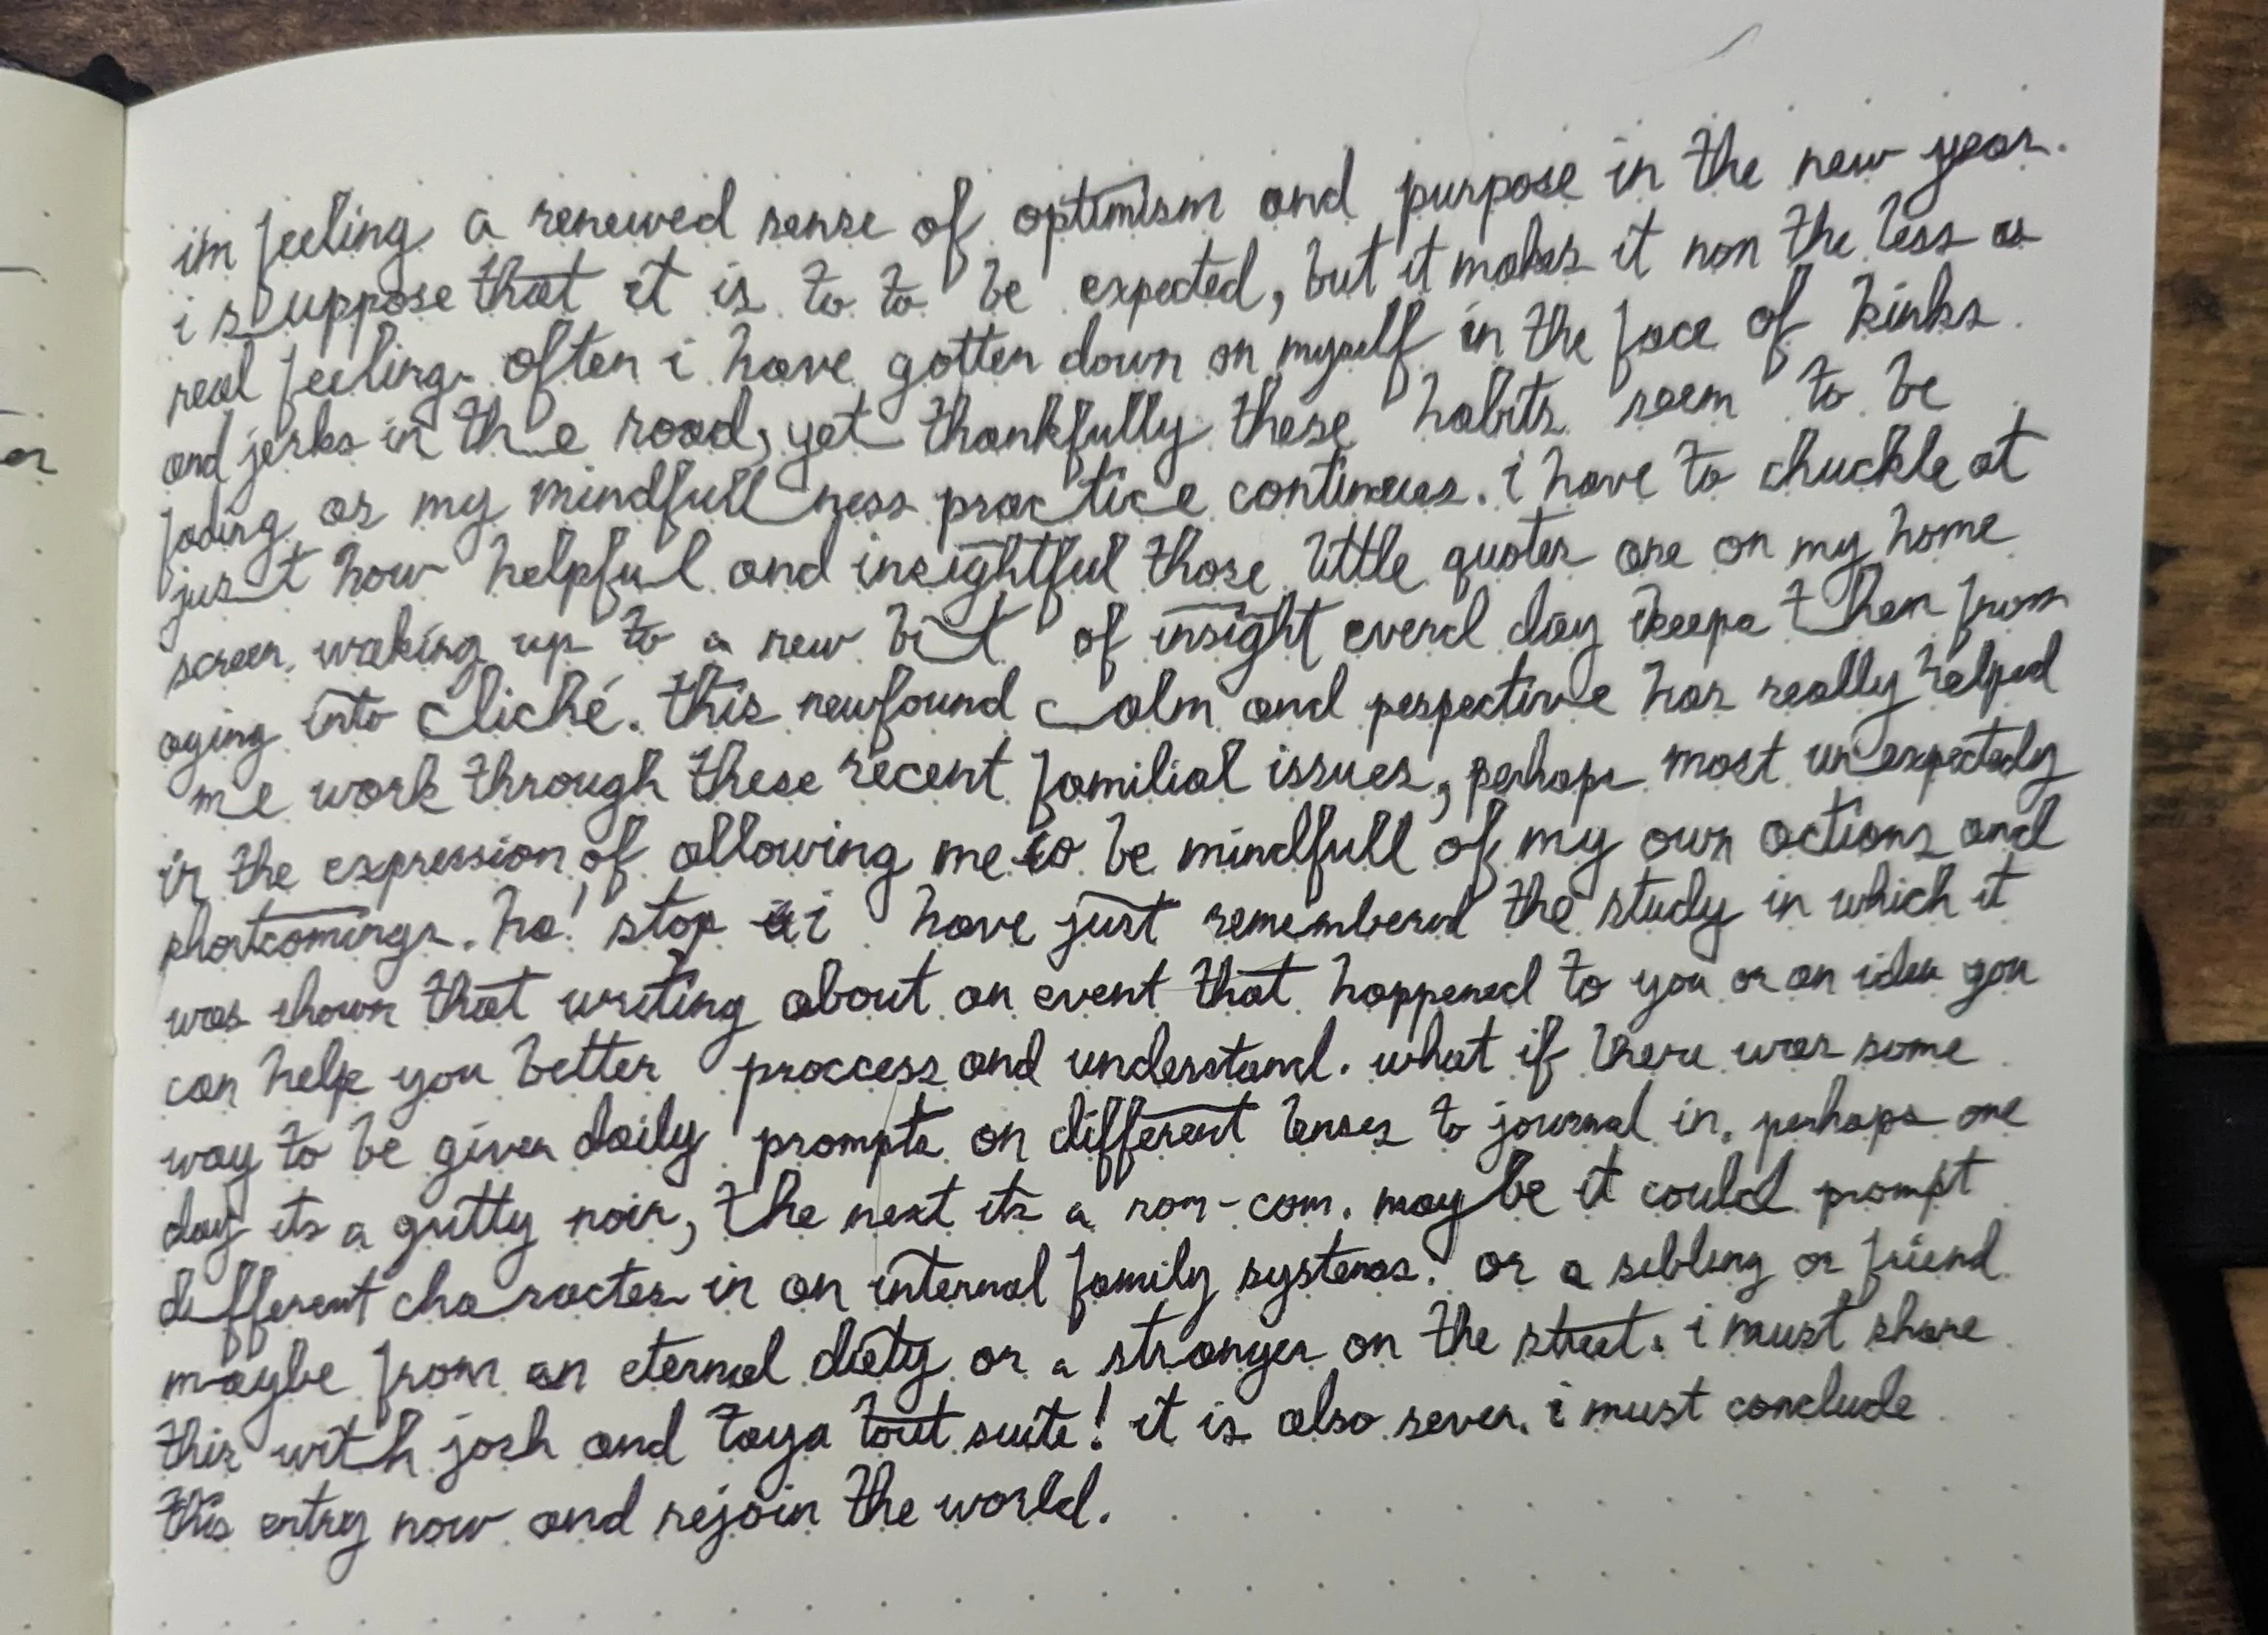 er
im feeling a renewed sense of optimism and purpose in the new year.
i suppose that it is to to be expected, but it makes it non the less as
real feeling. often i have gotten down on myself in the face of kinks
and jerks in the road, yet thankfully these habits seem to be
fading as my mindfullness practice continues. i have to chuckle at
just how helpful and insightful those little quotes are on my home
screen. waking up to a new bit of insight everd day keeps them from
aging into cliché. this newfound calm and perspective has really helped
me work through these recent familial issues, perhaps most unexpectedly
in the expression of allowing me to be mindfull of my own actions and
shortcomings. ha! stop i have just remembered the study in which it
was shown that writing about an event that happened to you or an idea you
can help you better proccess and understand. what if there was some
way to be given daily prompts on different lenses to journal in. perhaps one
day its a gritty noir, the next its a rom-com. maybe it could prompt
different character in an internal family systems. or a sibling or friend
maybe from an eternal diety or a stranger on the street. i must share
this with josh and taya tout suite! it is also seven. i must conclude
this entry now and rejoin the world.